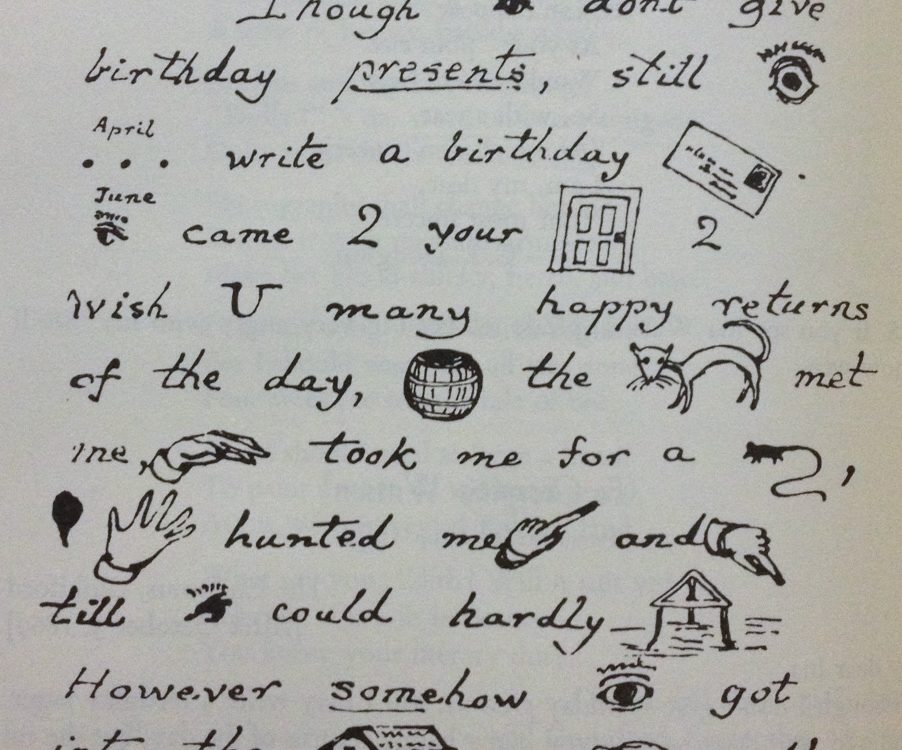 Though don't give
birthday presents, still
April
... write a birthday .
June
came 2 your 2
wish U many happy returns
of the day, the met
me, took me for a ,
hunted me and
till could hardly
However somehow got
into the